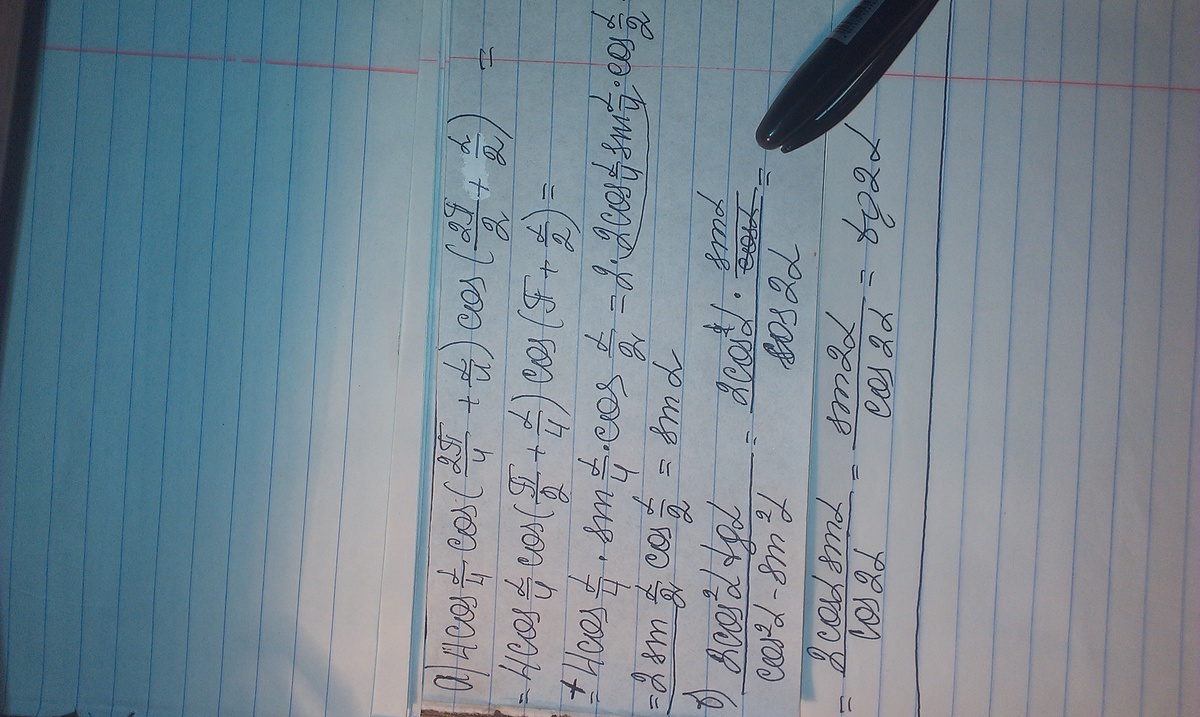 а) 4cos α/4 cos(2π/4 + α/4) cos(2π/2 + α/2) =
= 4cos α/4 cos(π/2 + α/4) cos(π + α/2) =
+
= 4cos α/4 · sin α/4 · cos α/2 = 2·2cos α/4 sin α/4 · cos α/2
= 2 sin α/2 cos α/2 = sin α
б) 2cos²α tgα / cos²α - sin²α = 2cos²α · sinα/cosα / cos2α =
= 2cosα sinα / cos2α = sin2α / cos2α = tg2α